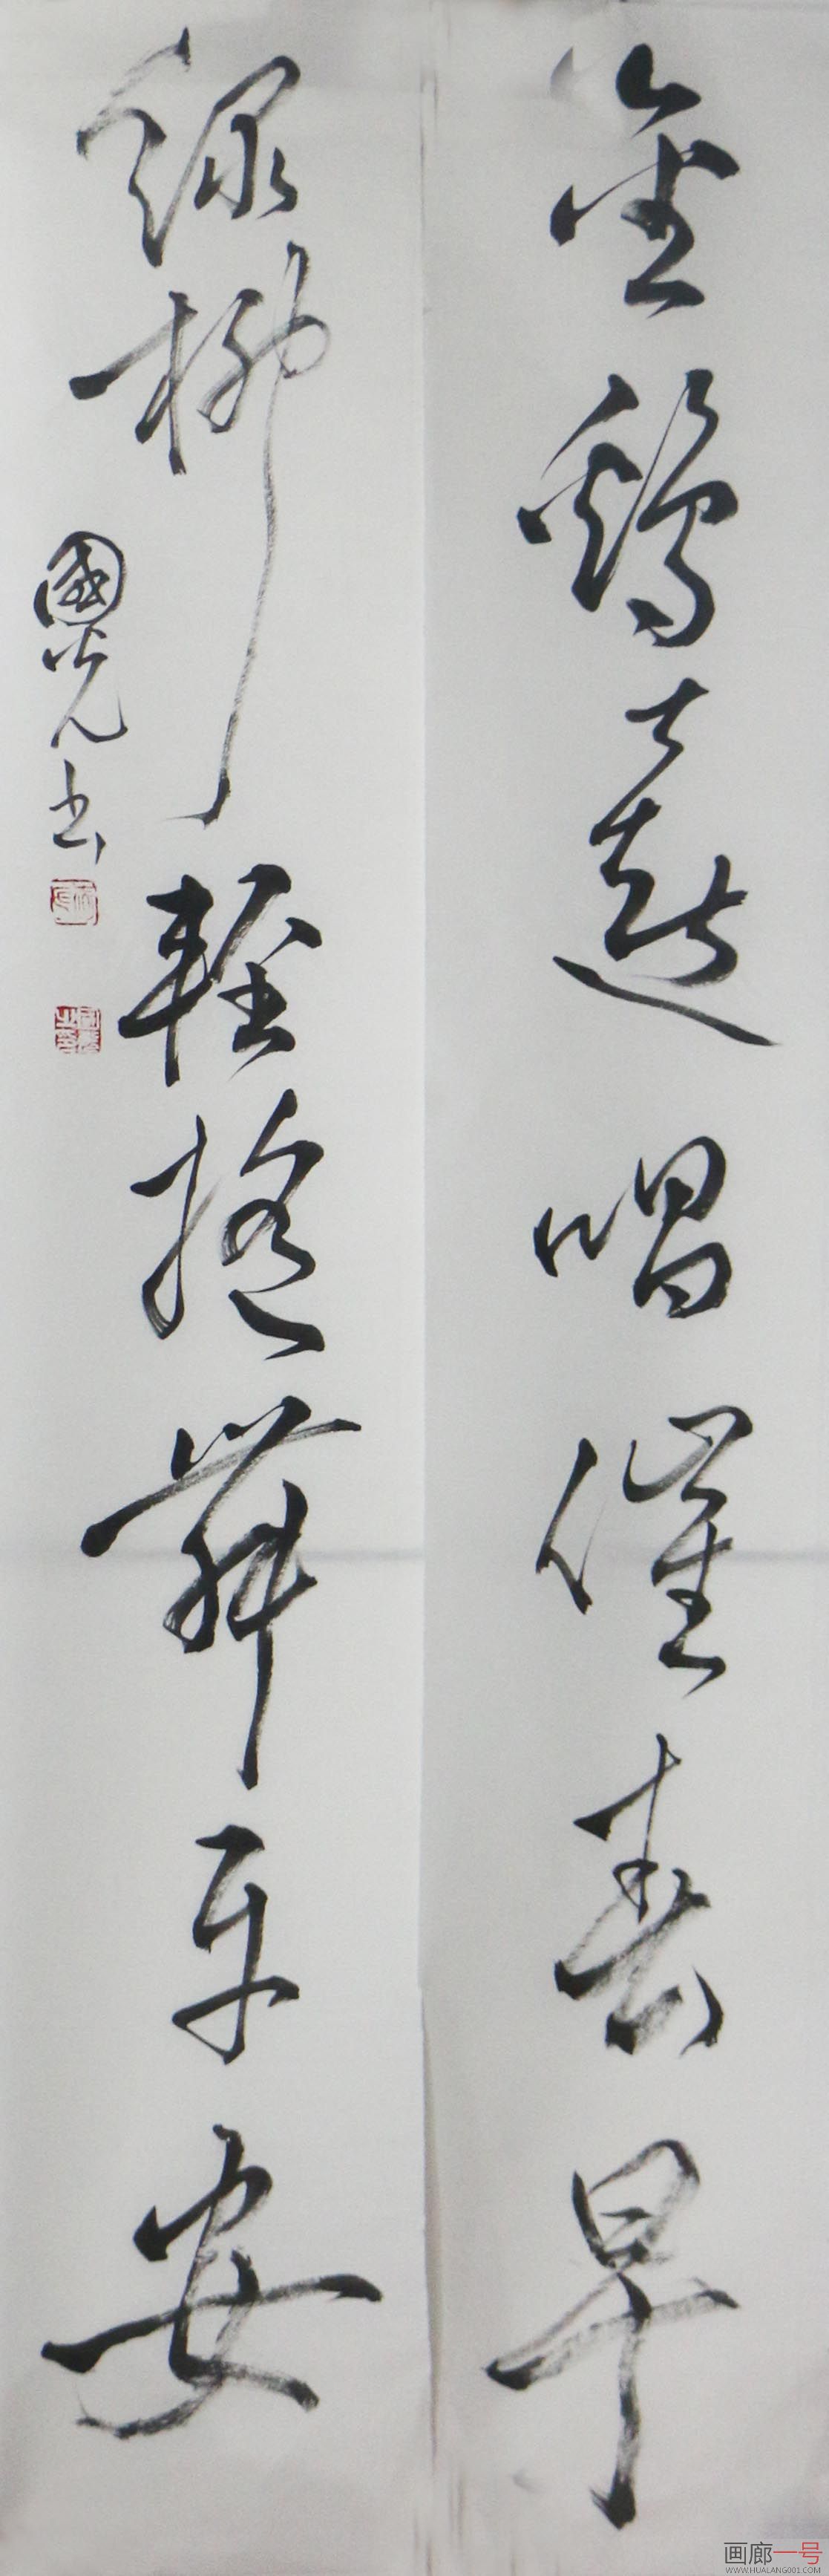 金鷄唱催春早
綠柳輕搖舞平安
國光书
画廊一号
WWW.HUALANG001.COM